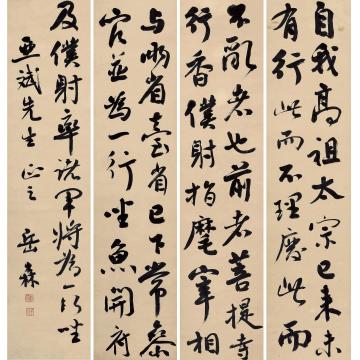 自我高祖太宗已来未
有行此而不理廢此而
不亂者也前者菩提寺
行香僕射指麾宰相
与兩省臺省已下常參
官並爲一行坐魚開府
及僕射率諸軍將爲一行坐
亞斌先生正之 岳森